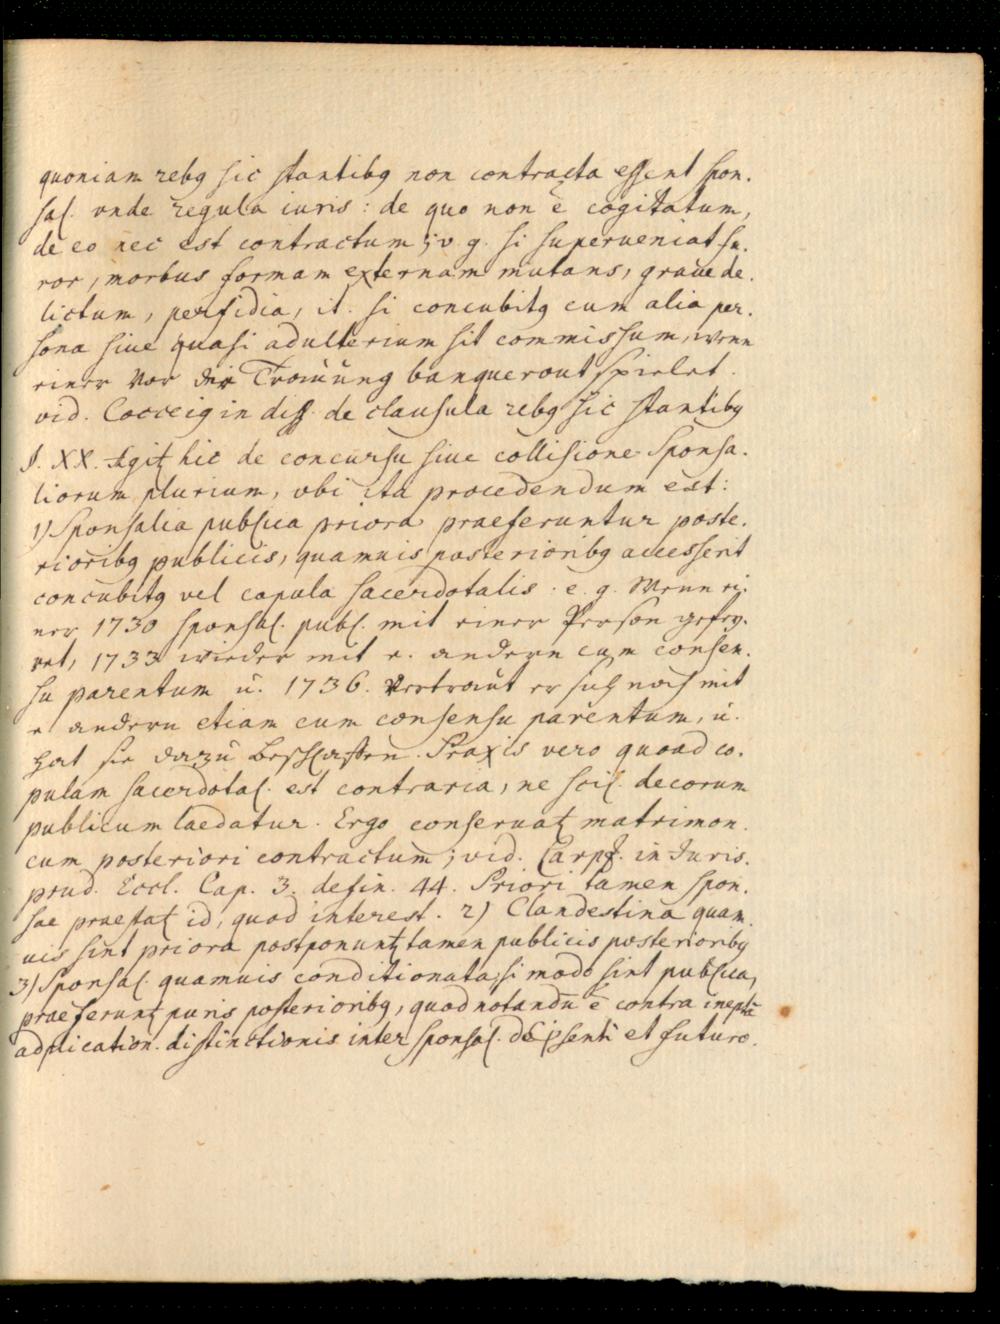 quoniam rebq sic stantibq non contracta essent spon.
sal. vnde regula iuris: de quo non ē cogitatum,
de eo nec est contractum; v. g. si superueniat fu.
ror, morbus formam externam mutans, graue de.
lictum, perfidia, it. si concubitq cum alia per.
sona siue quasi adulterium sit commissum, wenn
einer vor der Trauung banquerout spielet.
vid. Cocceiq in diss. de clausula rebq sic stantibq
§. XX. Agit hic de concursu siue collisione Sponsa.
liorum plurium, vbi ita procedendum est:
1) Sponsalia publica priora praeferuntur poste.
rioribq publicis, quamuis posterioribq accesserit
concubitq vel copula sacerdotalis. e. g. Wenn ei.
ner 1730 sponsal. publ. mit einer Person gefey.
ret, 1733 wieder mit e. andern cum consen.
su parentum u. 1736. vertraut er sich noch mit
e andern etiam cum consensu parentum, u.
hat sie dazu beschlaffen. Praxis vero quoad co.
pulam sacerdotal. est contraria, ne scil. decorum
publicum laedatur. Ergo conseruat matrimon.
cum posteriori contractum; vid. Carpz. in Juris.
prud. Eccl. Cap. 3. defin. 44. Priori tamen spon.
sae praestat id, quod interest. 2) Clandestina quam.
uis sint priora postponunt tamen publicis posterioribq
3) Sponsal. quamuis conditionata, si modo sint publica,
praeferunt puris posterioribq, quod notandū ē contra ineptā
adplication. distinctionis inter sponsal. de psenti et futuro.